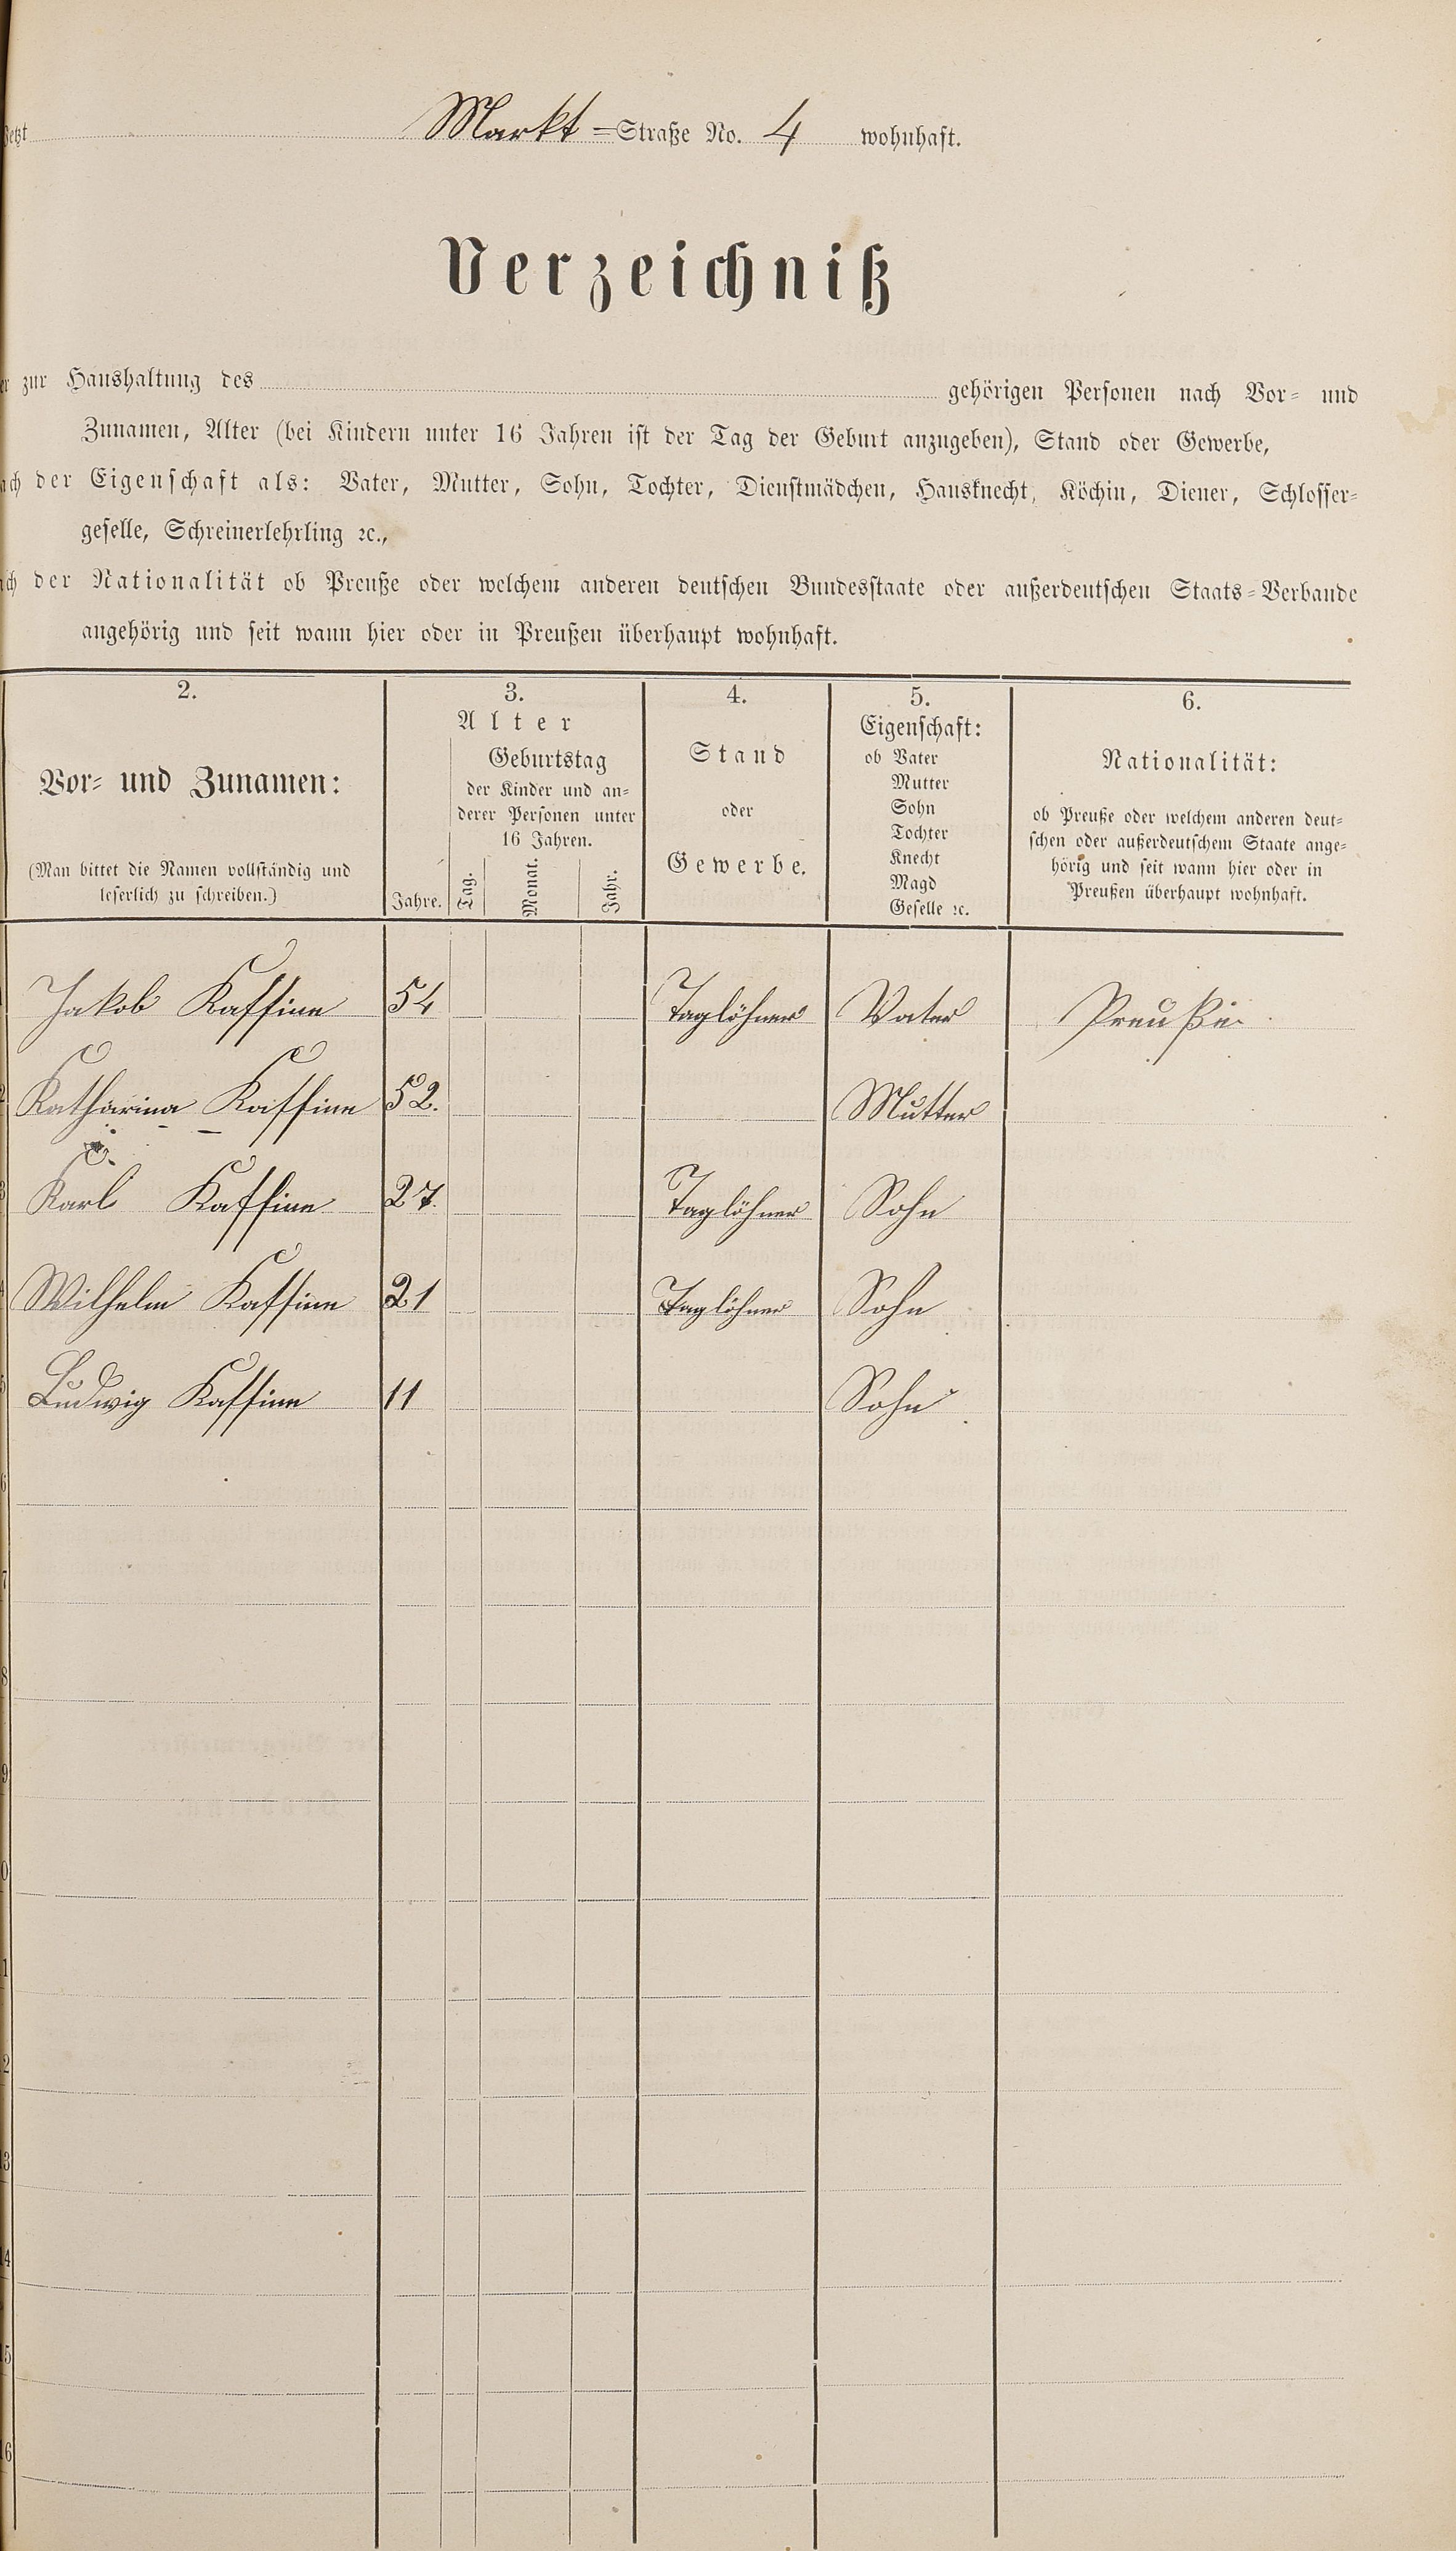 Jetzt Markt-Straße No. 4 wohnhaft.
Verzeichniß
zur Haushaltung des gehörigen Personen nach Vor- und
Zunamen, Alter (bei Kindern unter 16 Jahren ist der Tag der Geburt anzugeben), Stand oder Gewerbe,
der Eigenschaft als: Vater, Mutter, Sohn, Tochter, Dienstmädchen, Hausknecht, Köchin, Diener, Schlosser-
geselle, Schreinerlehrling ꝛc.,
der Nationalität ob Preuße oder welchem anderen deutschen Bundesstaate oder außerdeutschen Staats-Verbande
angehörig und seit wann hier oder in Preußen überhaupt wohnhaft.
2.
Vor- und Zunamen:
(Man bittet die Namen vollständig und
leserlich zu schreiben.)
3.
Alter
Jahre.
Geburtstag
der Kinder und an-
derer Personen unter
16 Jahren.
Tag. Monat. Jahr.
4.
Stand
oder
Gewerbe.
5.
Eigenschaft:
ob Vater
Mutter
Sohn
Tochter
Knecht
Magd
Geselle ꝛc.
6.
Nationalität:
ob Preuße oder welchem anderen deut-
schen oder außerdeutschem Staate ange-
hörig und seit wann hier oder in
Preußen überhaupt wohnhaft.
Jakob Kaffine 54 Taglöhner Vater Preuße
Katharina Kaffine 52. Mutter
3 Karl Kaffine 27. Taglöhner Sohn
Wilhelm Kaffine 21 Taglöhner Sohn
5 Ludwig Kaffine 11 Sohn
6
7
8
9
0
1
2
3
4
5
6